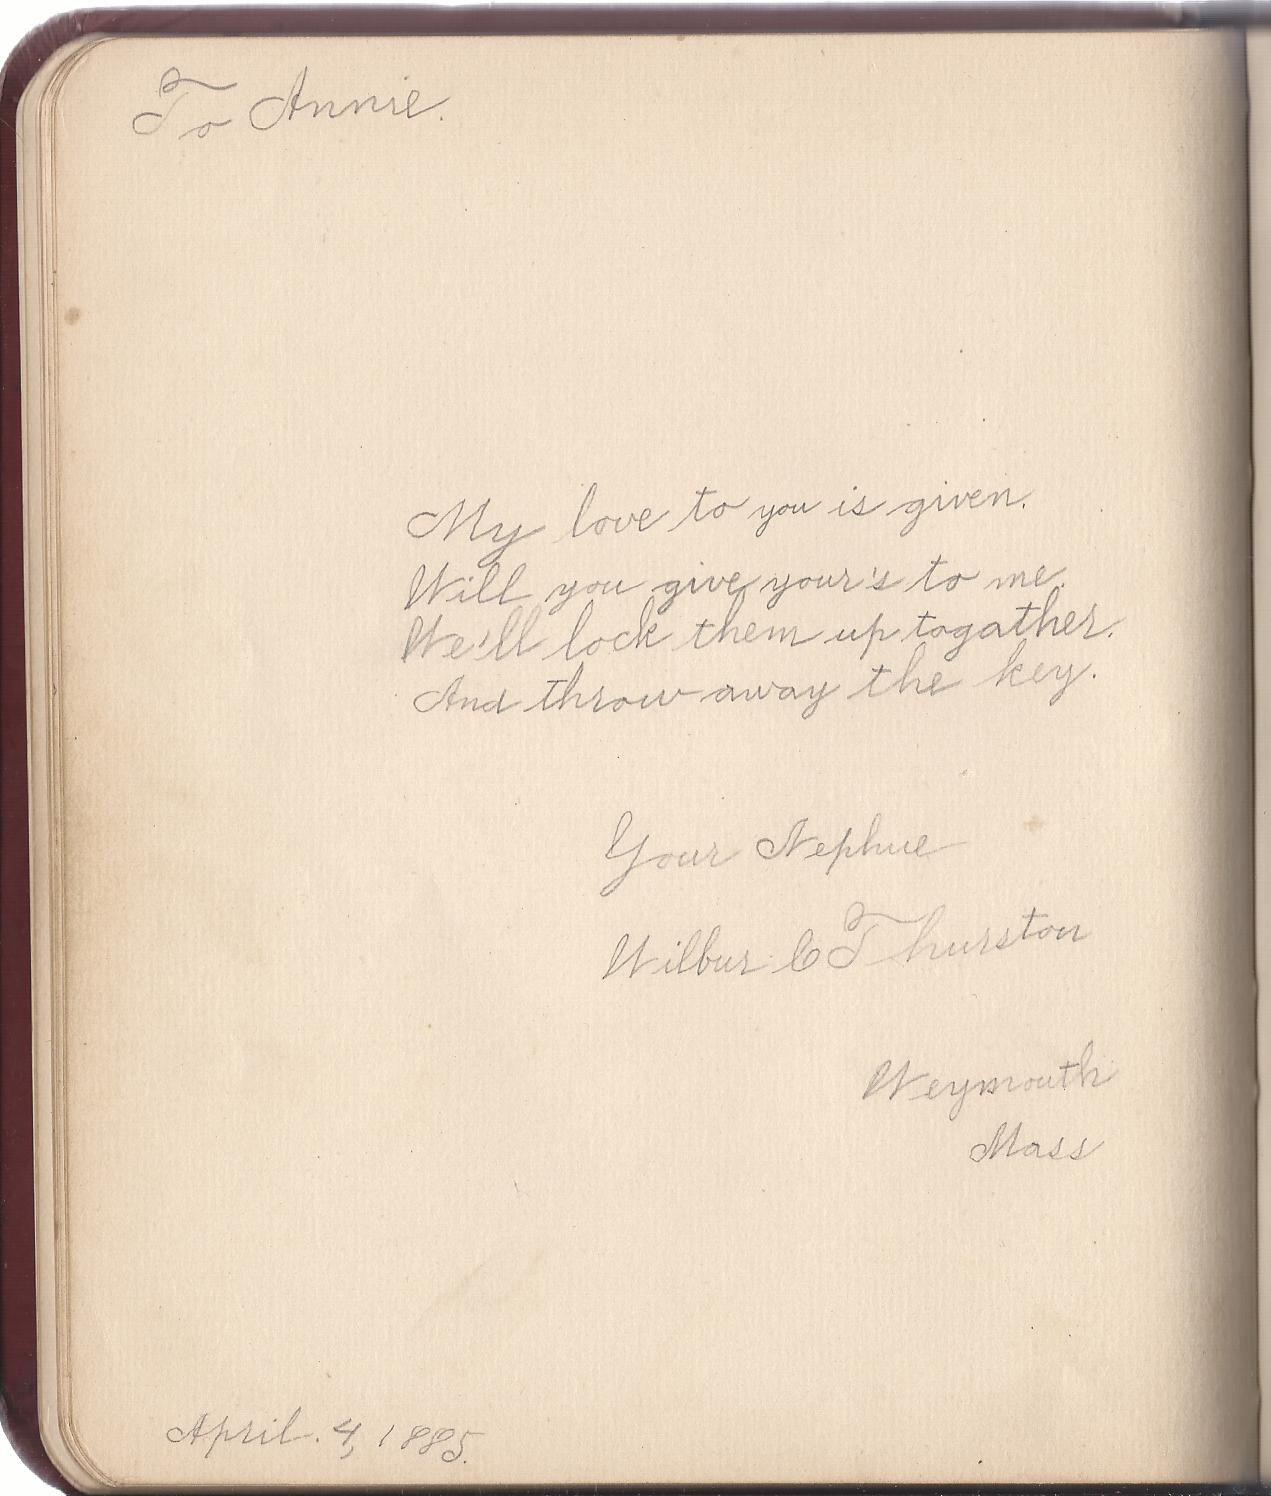 To Annie.
My love to you is given.
Will you give your's to me.
We'll lock them up togather.
And throw away the key.
Your Nephue
Wilbur C Thurston
Weymouth
Mass
April. 4, 1885.